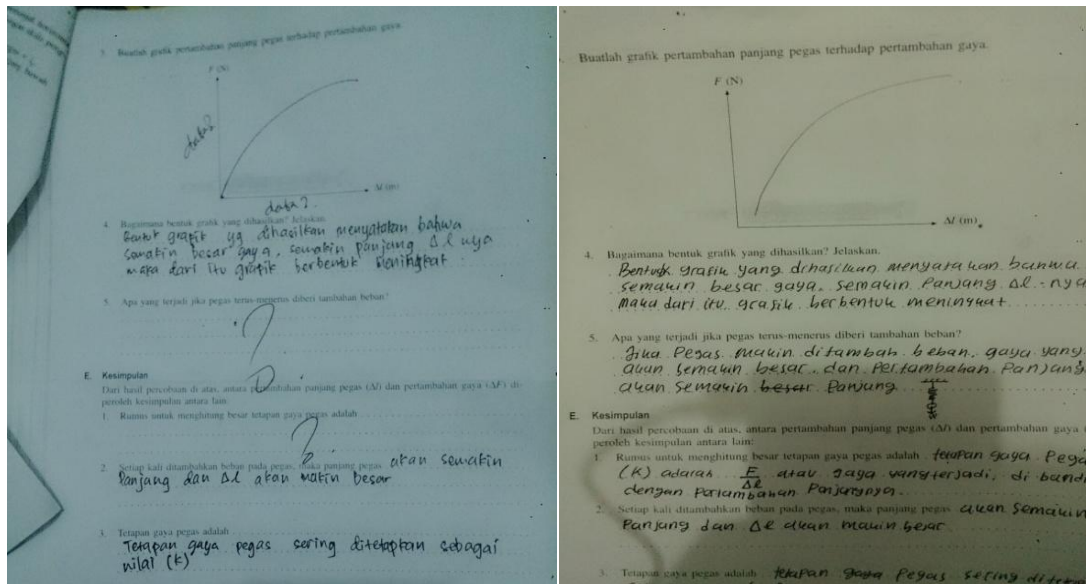 3. Buatlah grafik pertambahan panjang pegas terhadap pertambahan gaya.
F (N)
data?
Δl (m)
data?
4. Bagaimana bentuk grafik yang dihasilkan? Jelaskan.
Bentuk grafik yg dihasilkan menyatakan bahwa
semakin besar gaya, semakin panjang Δl nya
maka dari itu grafik berbentuk meningkat
5. Apa yang terjadi jika pegas terus-menerus diberi tambahan beban?
?
E. Kesimpulan
Dari hasil percobaan di atas, antara pertambahan panjang pegas (Δl) dan pertambahan gaya (ΔF) di-
peroleh kesimpulan antara lain:
1. Rumus untuk menghitung besar tetapan gaya pegas adalah
?
2. Setiap kali ditambahkan beban pada pegas, maka panjang pegas akan semakin
Panjang dan Δl akan makin besar
3. Tetapan gaya pegas adalah
Tetapan gaya pegas sering ditetapkan sebagai
nilai (k)
Buatlah grafik pertambahan panjang pegas terhadap pertambahan gaya.
F (N)
Δl (m)
4. Bagaimana bentuk grafik yang dihasilkan? Jelaskan.
Bentuk grafik yang dihasilkan menyatakan bahwa
semakin besar gaya, semakin Panjang Δl nya
maka dari itu grafik berbentuk meningkat
5. Apa yang terjadi jika pegas terus-menerus diberi tambahan beban?
Jika Pegas makin ditambah beban, gaya yang
akan semakin besar, dan Pertambahan Panjang
akan semakin besar Panjang
E. Kesimpulan
Dari hasil percobaan di atas, antara pertambahan panjang pegas (Δl) dan pertambahan gaya
peroleh kesimpulan antara lain:
1. Rumus untuk menghitung besar tetapan gaya pegas adalah tetapan gaya Pega
(K) adalah F/Δl atau gaya yang terjadi, di band
dengan Pertambahan Panjangnya.
2. Setiap kali ditambahkan beban pada pegas, maka panjang pegas akan semakin
Panjang dan Δl akan makin besar
3. Tetapan gaya pegas adalah tetapan gaya Pegas sering